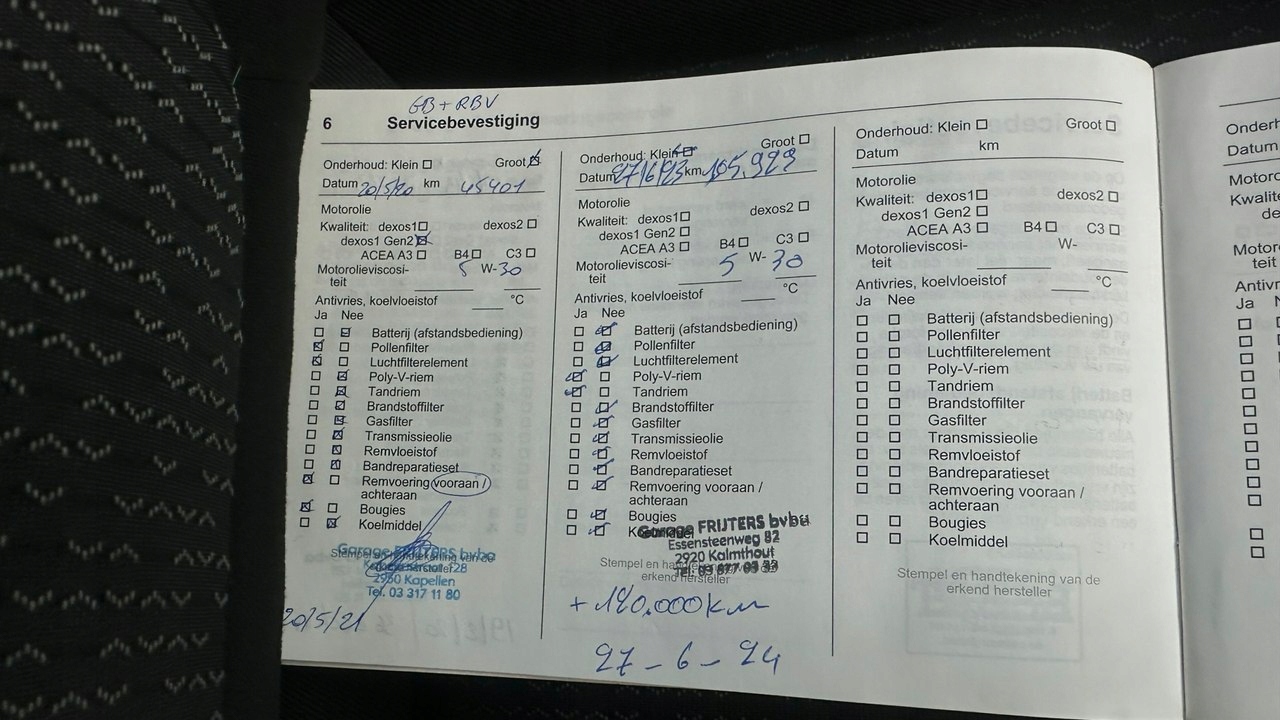 GB + RBV
6 Servicebevestiging
Onderhoud: Klein Groot
Datum 20/5/20 km 45401
Motorolie
Kwaliteit: dexos1 dexos2
dexos1 Gen2
ACEA A3 B4 C3
Motorolieviscosi- 5 W-30
teit
Antivries, koelvloeistof °C
Ja Nee
Batterij (afstandsbediening)
Pollenfilter
Luchtfilterelement
Poly-V-riem
Tandriem
Brandstoffilter
Gasfilter
Transmissieolie
Remvloeistof
Bandreparatieset
Remvoering vooraan /
achteraan
Bougies
Koelmiddel
Garage FRIJTERS bvba
2950 Kapellen
Tel. 03 317 11 80
20/5/21
Onderhoud: Klein Groot
Datum 27/6/23 km 105.923
Motorolie
Kwaliteit: dexos1 dexos2
dexos1 Gen2
ACEA A3 B4 C3
Motorolieviscosi- 5 W- 30
teit
Antivries, koelvloeistof °C
Ja Nee
Batterij (afstandsbediening)
Pollenfilter
Luchtfilterelement
Poly-V-riem
Tandriem
Brandstoffilter
Gasfilter
Transmissieolie
Remvloeistof
Bandreparatieset
Remvoering vooraan /
achteraan
Bougies
Garage FRIJTERS bvba
Essensteenweg 82
2920 Kalmthout
erkend hersteller
+ 120.000 km
27 - 6 - 24
Onderhoud: Klein Groot
Datum km
Motorolie
Kwaliteit: dexos1 dexos2
dexos1 Gen2
ACEA A3 B4 C3
Motorolieviscosi- W-
teit
Antivries, koelvloeistof °C
Ja Nee
Batterij (afstandsbediening)
Pollenfilter
Luchtfilterelement
Poly-V-riem
Tandriem
Brandstoffilter
Gasfilter
Transmissieolie
Remvloeistof
Bandreparatieset
Remvoering vooraan /
achteraan
Bougies
Koelmiddel
Stempel en handtekening van de
erkend hersteller
Datum
Ja Nee